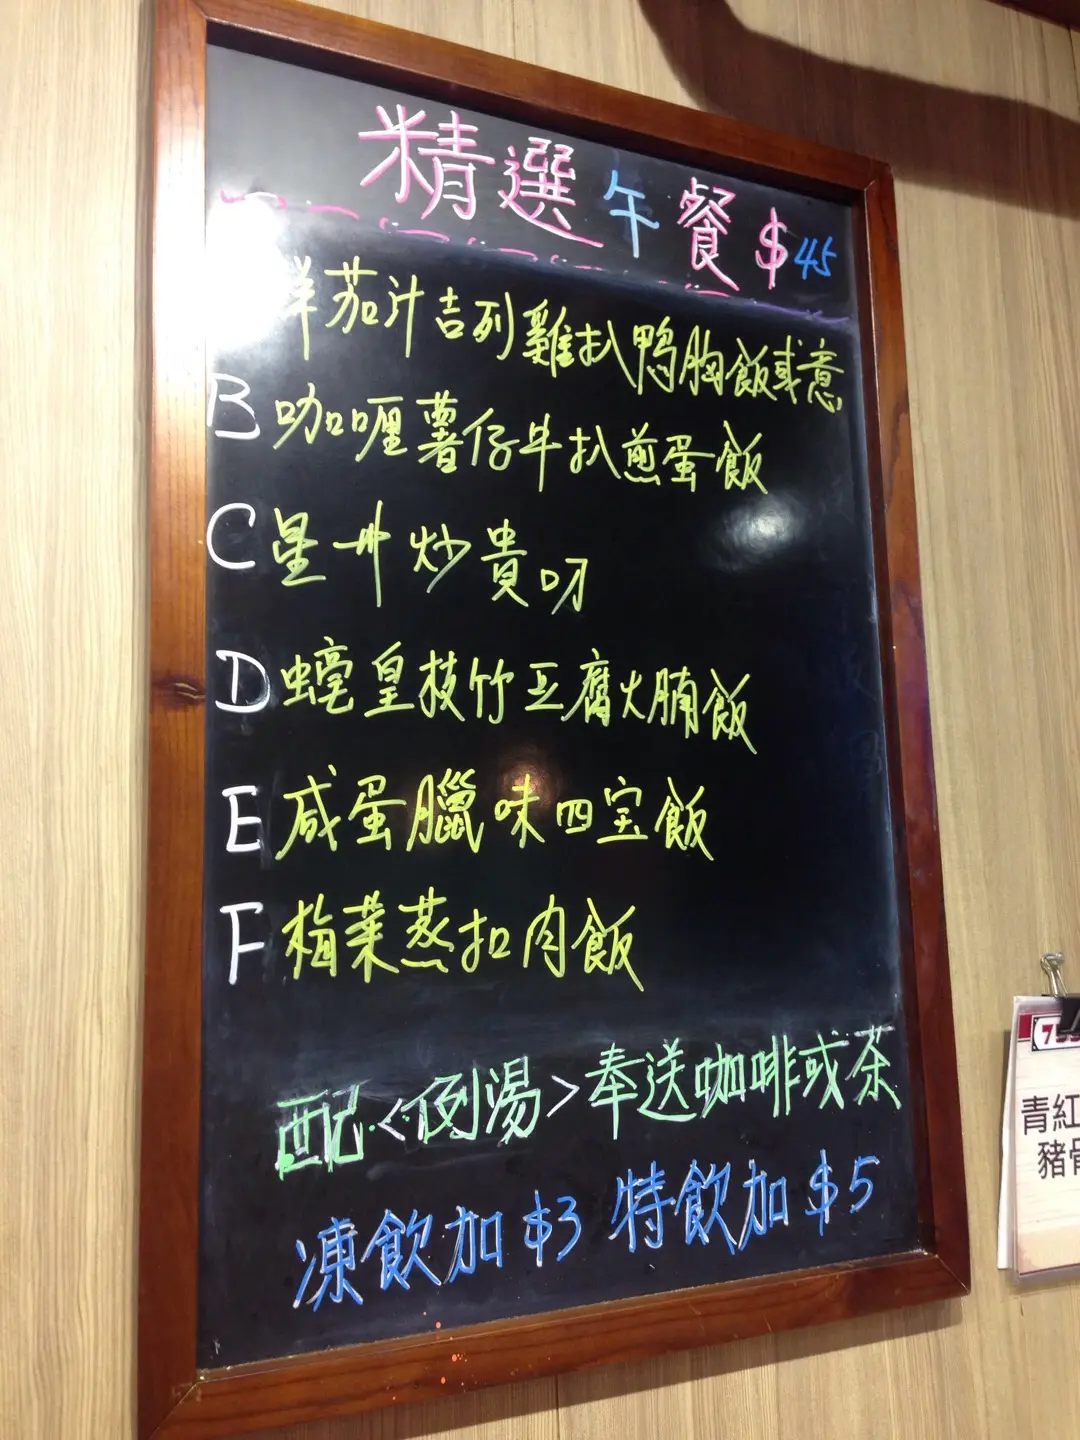 精選午餐 $45
鮮茄汁吉列雞扒鴨胸飯或意
B 咖喱薯仔牛扒煎蛋飯
C 星卅炒貴叼
D 蠔皇枝竹豆腐火腩飯
E 咸蛋臘味四宝飯
F 梅菜蒸扣肉飯
配<例湯>奉送咖啡或茶
凍飲加$3 特飲加$5
青紅
豬骨